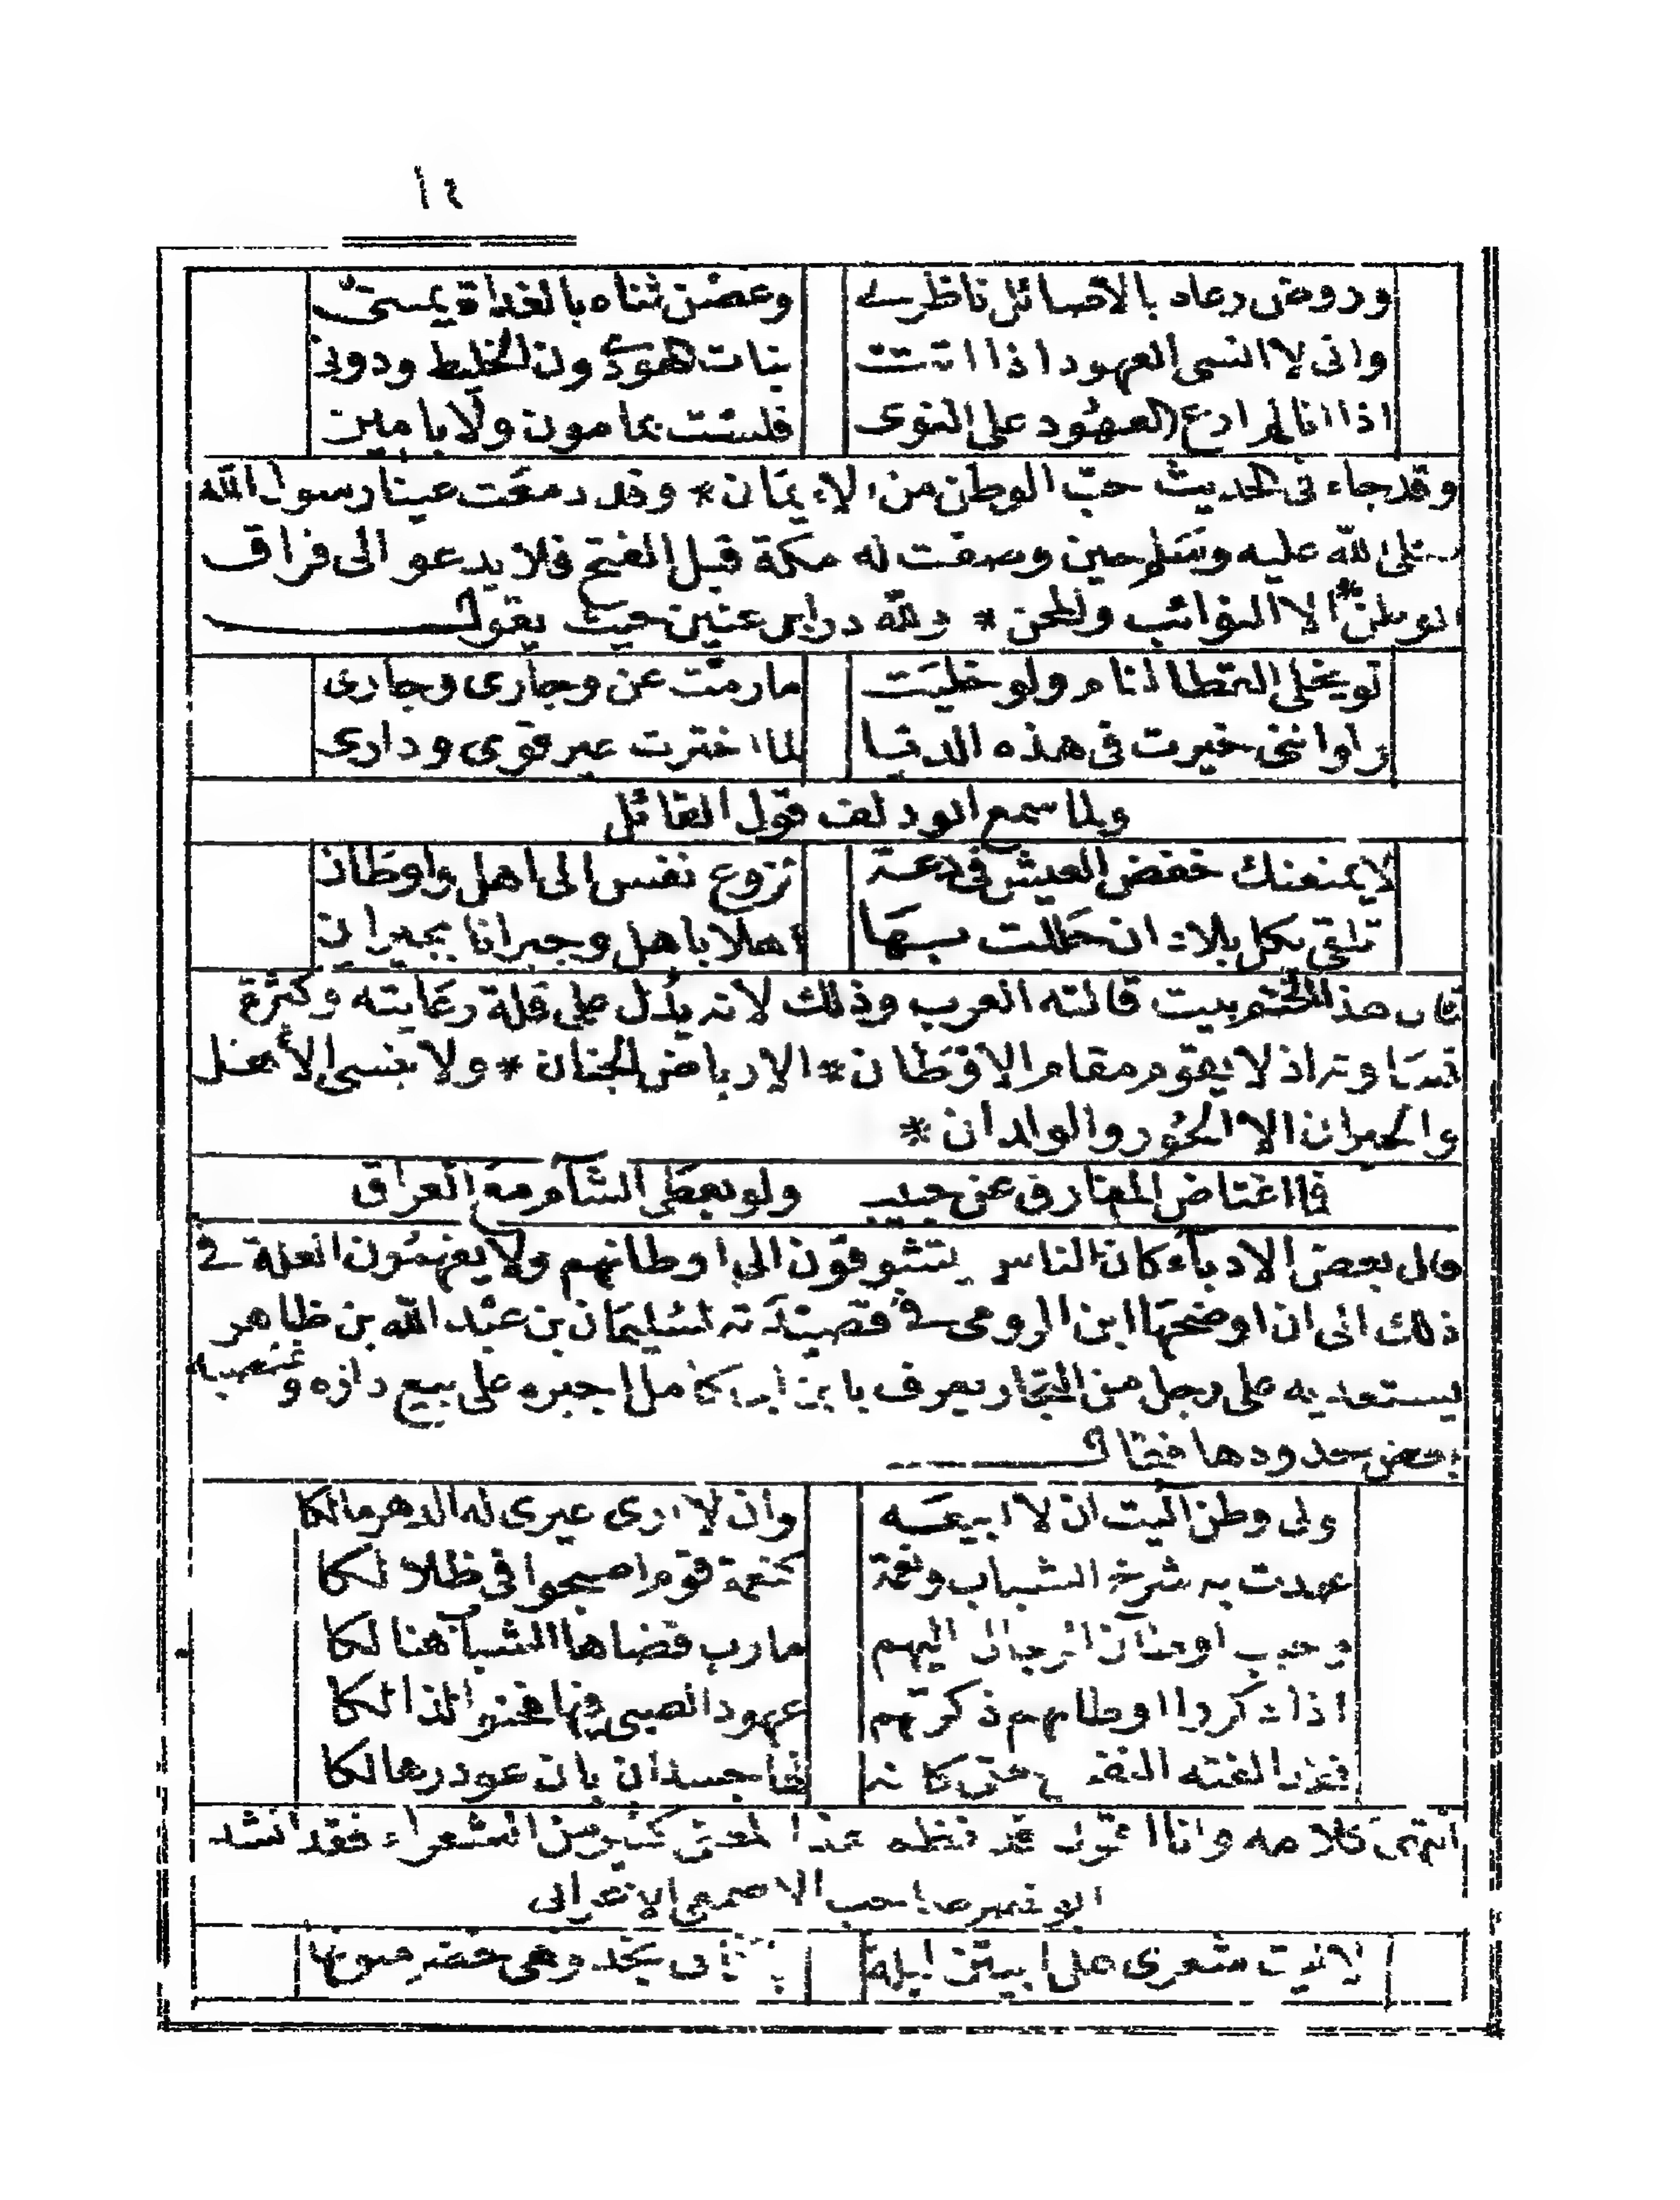 ١٤
وروض رعاه بالاصائل ناظرى وغصن ثناه بالغداة يمينى
وانى لا انسى العهود اذا اتت بنات الهوى دون الخليط ودونى
اذا انا لم ارع العهود على النوى فلست بمامون ولا بامين
وقد جاء فى الحديث حبّ الوطن من الايمان * وقد دمعت عينا رسول الله
صلى الله عليه وسلم حين وصفت له مكة قبل الفتح فلا يدعو الى فراق
الوطن * الا النوائب والمحن * ولله در ابن عنين حيث يقول
ما رمت عن وجارى وجارى
خيرت فى هذه الدنيا لما اخترت غير قومى ودارى
ولما سمع ابو دلف قول القائل
لا يمنعنك خفض العيش فى دعة نزوع نفس الى اهل واوطان
تلقى بكل بلاد ان حللت بها اهلا باهل وجيرانا بجيران
قال هذا بيت قالته العرب وذلك لانه يدل على قلة رعايته وكثرة
قساوته اذ لا يقوم مقام الاوطان * الا رياض الجنان * ولا ينسى الأهل
والجيران الا الحور والولدان *
فما اعتاض المفارق عن حبيب ولو يعطى الشآم مع العراق
قال بعض الادباء كان الناس يتشوقون الى اوطانهم ولا يفهمون العلة فى
ذلك الى ان اوضحها ابن الرومى فى قصيدته لسليمان بن عبد الله بن طاهر
يستعديه على رجل من التجار يعرف بابن ابى كامل اجبره على بيع داره وغصبه
بعض حدودها فقال
ولى وطن آليت ان لا ابيعه وان لا ارى غيرى له الدهر مالكا
عهدت به شرخ الشباب ونعمة كنعمة قوم اصبحوا فى ظلالكا
وحبب اوطان الرجال اليهم مارب قضاها الشباب هنالكا
اذا ذكروا اوطانهم ذكرتهم عهود الصبى فيها فحنوا لذالكا
فقد الفته النفس حتى كانه لها جسد ان بان غودر هالكا
انتهى كلامه وانا اقول قد نظم هذا المعنى كثير من الشعراء فقد انشد
ابو نصر صاحب الاصمعى لاعرابى
الا ليت شعرى هل ابيتن ليلة